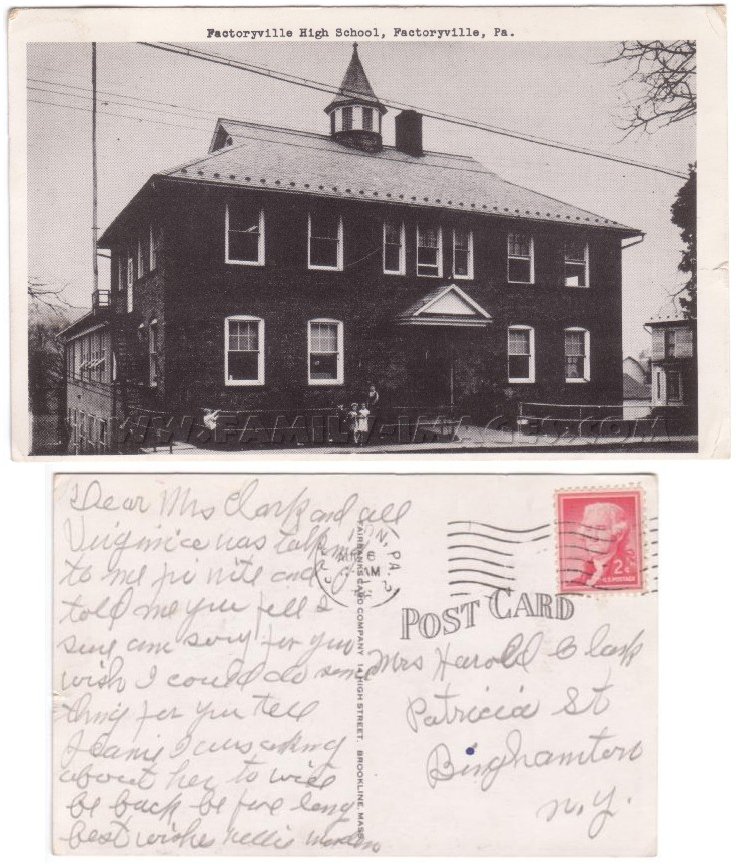 Factoryville High School, Factoryville, Pa.
WWW.FAMILY-IMAGES.COM
Dear Mrs Clark and all
Virginice was talking
to me fri nite and
told me you fell I
sure am sory for you
wish I could do some
thing for you tell
Jeanie I was asking
about her to will
be back be fore long
best wishes Nellie
FAIRBANKS CARD COMPANY 14 HIGH STREET. BROOKLINE, MASS.
ON, PA.
6
AM
2¢
U.S. POSTAGE
POST CARD
Mrs Harold Clark
Patricia St
Binghamton
N.Y.